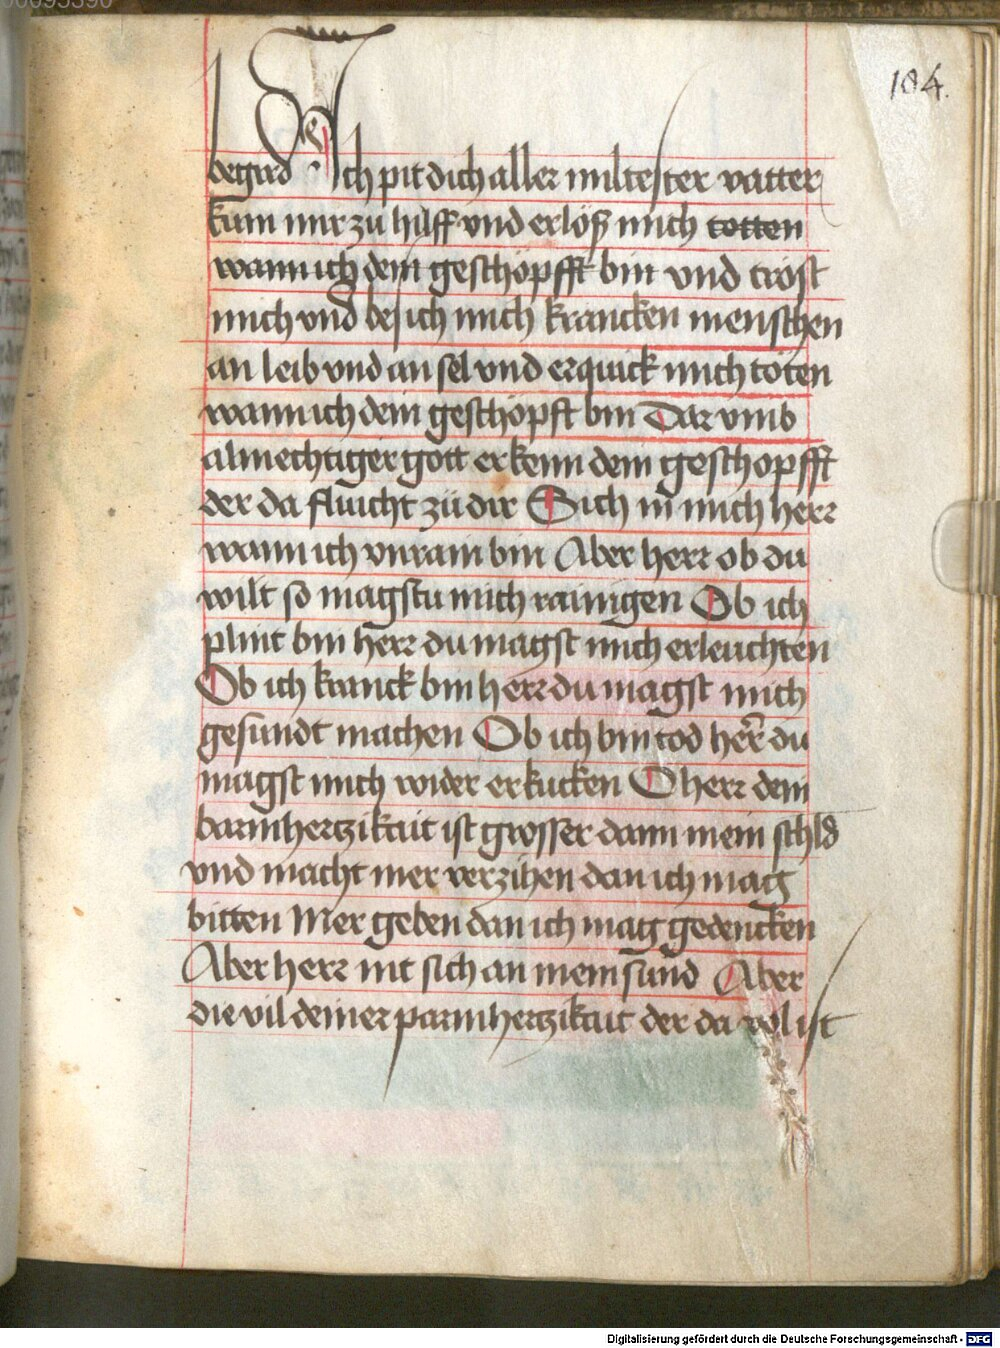 00095590
184.
begird Ich pit dich aller miltester vatter
kum mir zu hilff vnd erlöß mich totten
wann ich dein geschöpfft bin vnd tröst
mich vnd besich mich krancken menschen
an leib vnd an sel vnd erquick mich toten
wann ich dein geschöpft bin Dar vmb
almechtiger gott erkenn dein geschopfft
der da fluicht zü dir Sich in mich herr
wann ich vnrain bin Aber herr ob du
wilt so magstu mich rainigen Ob ich
plint bin herr du magst mich erleuchten
Ob ich kranck bin herr du magst mich
gesundt machen Ob ich bin tod herr du
magst mich wider erkucken O herr dein
barmhertzikait ist grosser dann mein schld
vnd macht mer verzihen dan ich mag
bitten Mer geben dan ich mag gedencken
Aber herr nit sich an mein sünd Aber
die vil deiner parmhertzikait der da vol ist
Digitalisierung gefördert durch die Deutsche Forschungsgemeinschaft - DFG